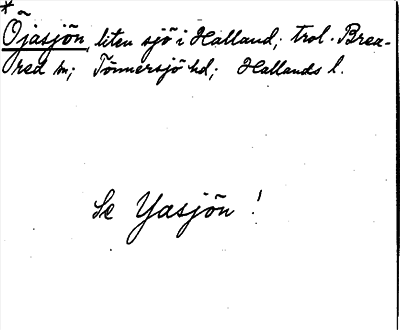 *
Öjasjön liten sjö i Halland; trol. Brea-
red sn; Tönnersjö hd; Hallands l.
Se Yasjön!